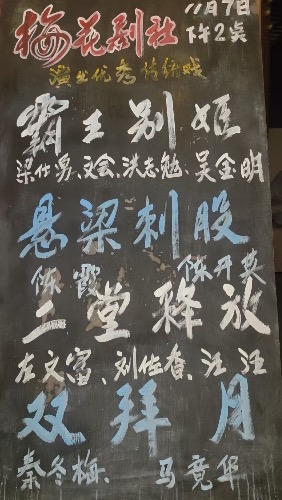 梅花剧社
11月7日
下午2点
演出优秀传统戏
霸王别姬
梁仕勇、文会、洪志勉、吴金明
悬梁刺股
陈霞 陈开英
二堂释放
左文富、刘佐香、汪汪
双拜月
秦冬梅、马竞华